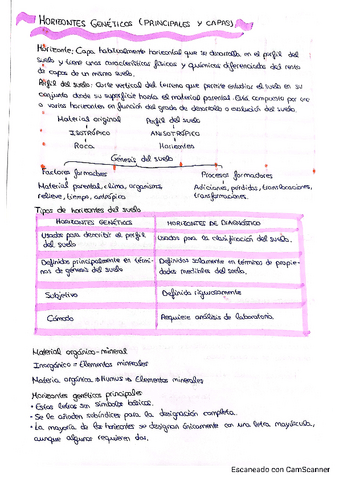 HORIZONTES GENÉTICOS (PRINCIPALES Y CAPAS)
Horizonte: Capa habitualmente horizontal que se desarrolla en el perfil del
suelo y tiene unas características físicas y químicas diferenciadas del resto
de capas de un mismo suelo.
Perfil del suelo: Corte vertical del terreno que permite estudiar el suelo en su
conjunto desde su superficie hasta el material parental. Está compuesto por uno
o varios horizontes en función del grado de desarrollo o evolución del suelo.
Material original Perfil del suelo
ISOTRÓPICO ANISOTRÓPICO
Roca Horizontes
Génesis del suelo
Factores formadores Procesos formadores
Material parental, clima, organismos, Adiciones, pérdidas, translocaciones,
relieve, tiempo, antrópico transformaciones.
Tipos de horizontes del suelo
HORIZONTES GENÉTICOS HORIZONTES DE DIAGNÓSTICO
Usados para describir el perfil Usados para la clasificación del suelo.
del suelo
Definidos principalmente en térmi- Definidos solamente en términos de propie-
nos de génesis del suelo dades medibles del suelo.
Subjetivo Definido rigurosamente
Cómodo Requiere análisis de laboratorio
Material orgánico-mineral
Inorgánico = Elementos minerales
Materia orgánica → Humus → Elementos minerales
Horizontes genéticos principales
• Estas letras son símbolos básicos.
• Se le añaden subíndices para la designación completa.
• La mayoría de los horizontes se designan únicamente con una letra mayúscula,
aunque algunos requieren dos.
Escaneado con CamScanner